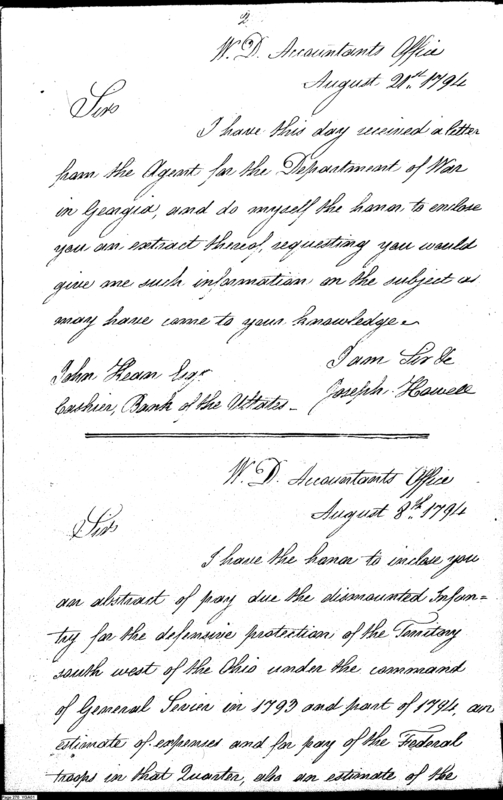 2
W. D. Accountants Office
August 21st 1794
Sir
I have this day received a letter
from the Agent for the Department of War
in Georgia, and do myself the honor to enclose
you an extract thereof, requesting you would
give me such information on the subject as
may have come to your knowledge.
I am Sir &c
John Kean Esqr
Joseph Howell
Cashier, Bank of the UStates
W. D. Accountants Office
August 8th 1794
Sir
I have the honor to inclose you
an abstract of pay due the dismounted Infan=
try for the defensive protection of the Territory
south west of the Ohio under the command
of General Sevier in 1793 and part of 1794, an
estimate of expenses and for pay of the Federal
troops in that Quarter, also an estimate of the